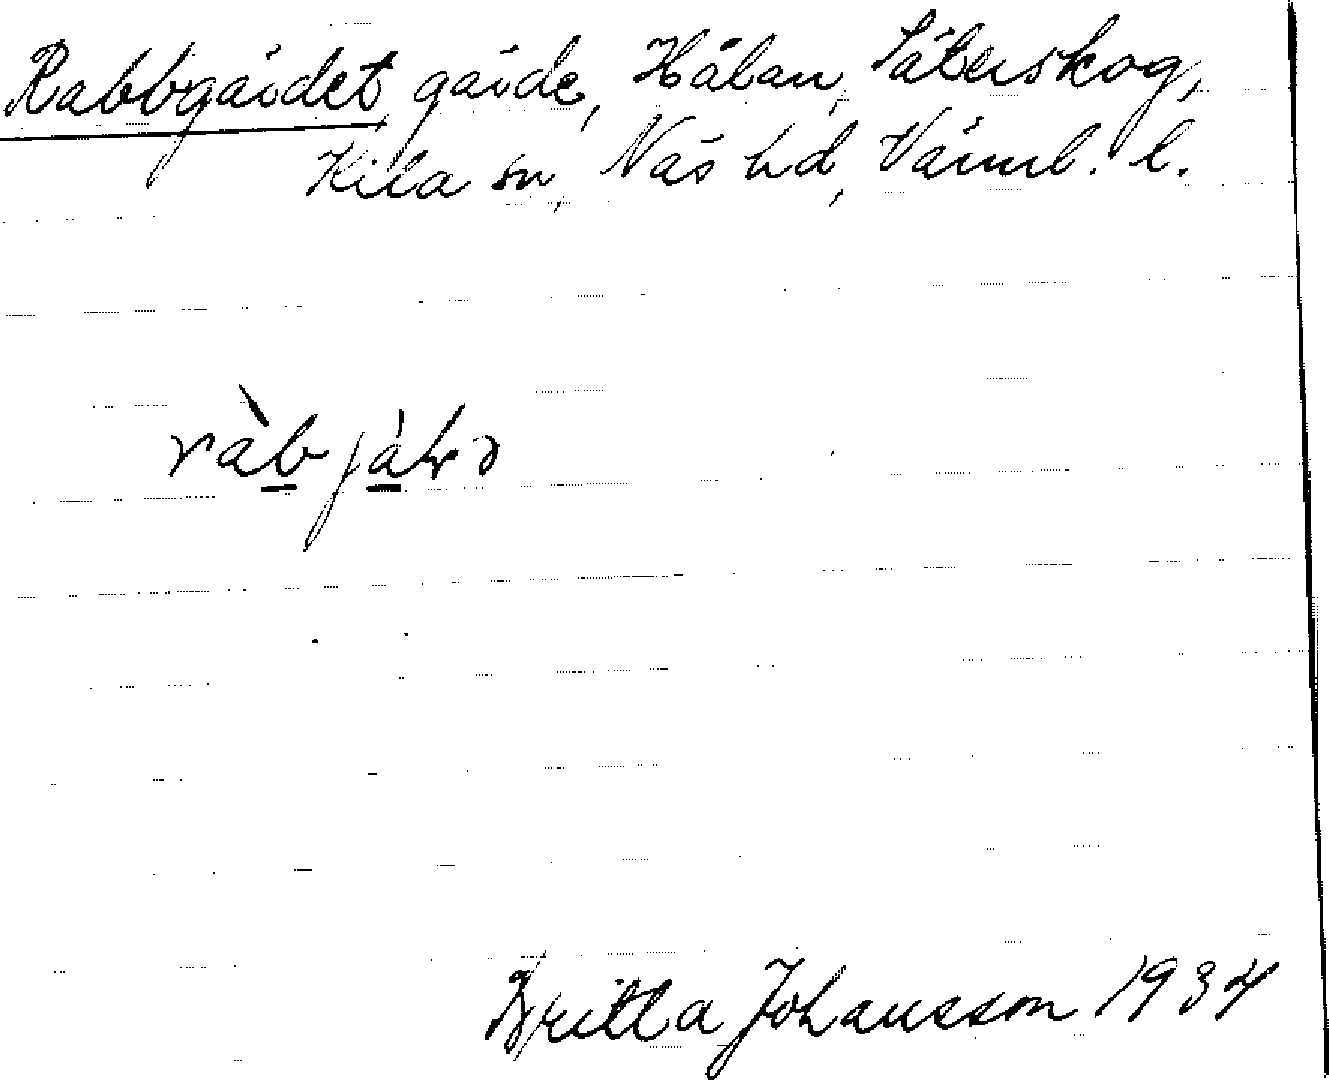 Rabbgärdet, gärde, Hålan, Säterskog,
Kila sn, Näs hd, Värml. l.
Britta Johansson 1934